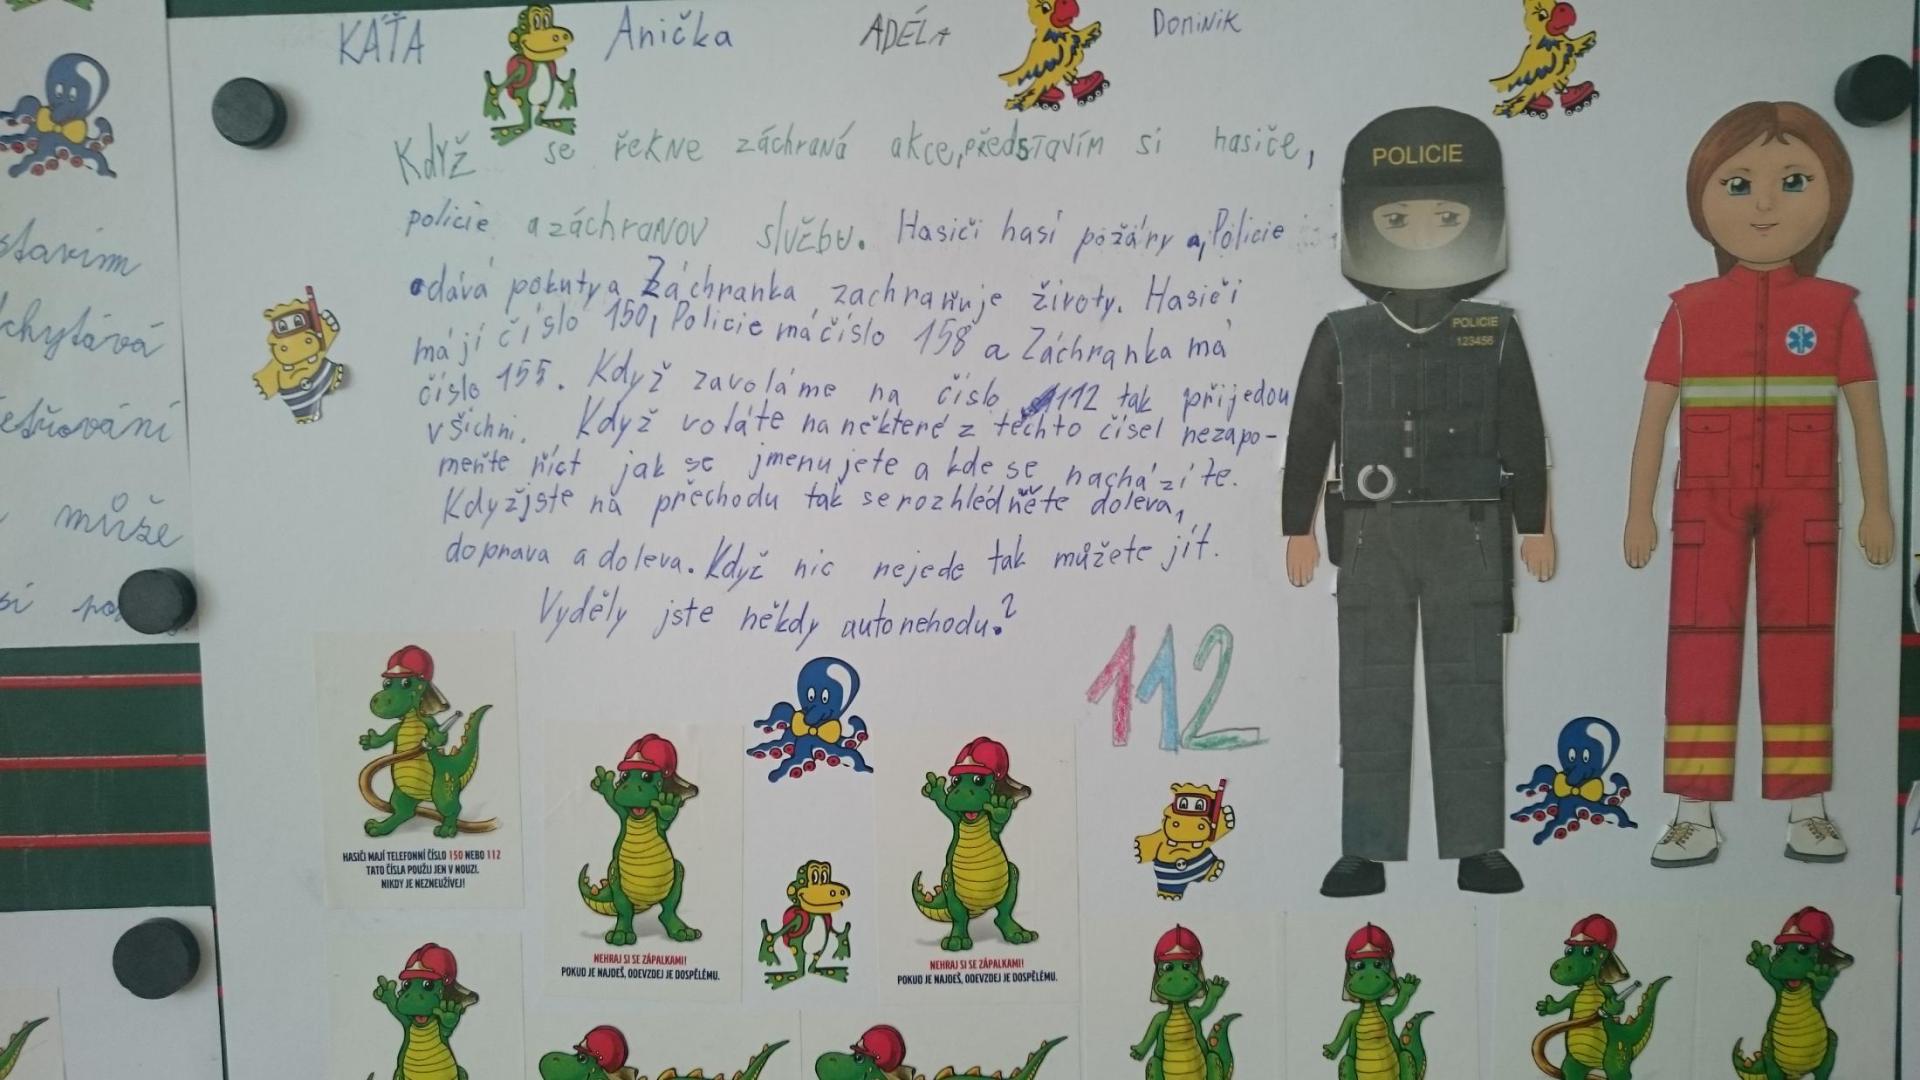 KÁŤA Anička ADÉLA Dominik
Když se řekne záchraná akce, představím si hasiče,
policie a záchranov službu. Hasiči hasí požáry a, Policie
dává pokuty a Záchranka zachraňuje životy. Hasiči
májí číslo 150, Policie má číslo 158 a Záchranka má
číslo 155. Když zavoláme na číslo 112 tak přijedou
všichni. Když voláte na některé z těchto čísel nezapo-
meňte říct jak se jmenujete a kde se nacházíte.
Když jste na přechodu tak se rozhlédňěte doleva,
doprava a doleva. Když nic nejede tak můžete jít.
Vyděly jste někdy autonehodu?
112
POLICIE
POLICIE
123456
stavím
chytává
etřování
může
sí
HASIČI MAJÍ TELEFONNÍ ČÍSLO 150 NEBO 112
TATO ČÍSLA POUŽIJ JEN V NOUZI.
NIKDY JE NEZNEUŽÍVEJ!
NEHRAJ SI SE ZÁPALKAMI!
POKUD JE NAJDEŠ, ODEVZDEJ JE DOSPĚLÉMU.
NEHRAJ SI SE ZÁPALKAMI!
POKUD JE NAJDEŠ, ODEVZDEJ JE DOSPĚLÉMU.